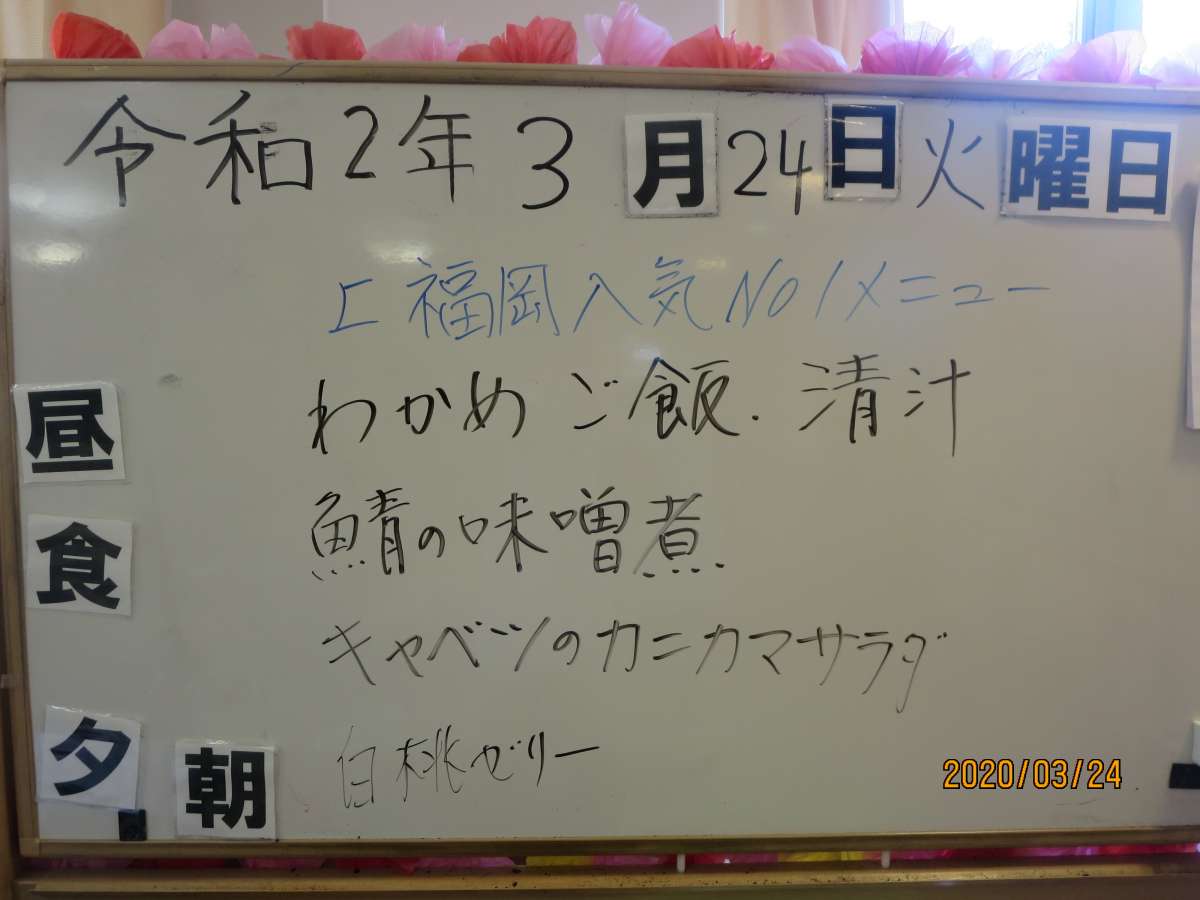 令和2年3月24日火曜日
上福岡人気No1メニュー
わかめご飯.清汁
昼
鯖の味噌煮
食
キャベツのカニカマサラダ
夕
朝
白桃ゼリー
2020/03/24